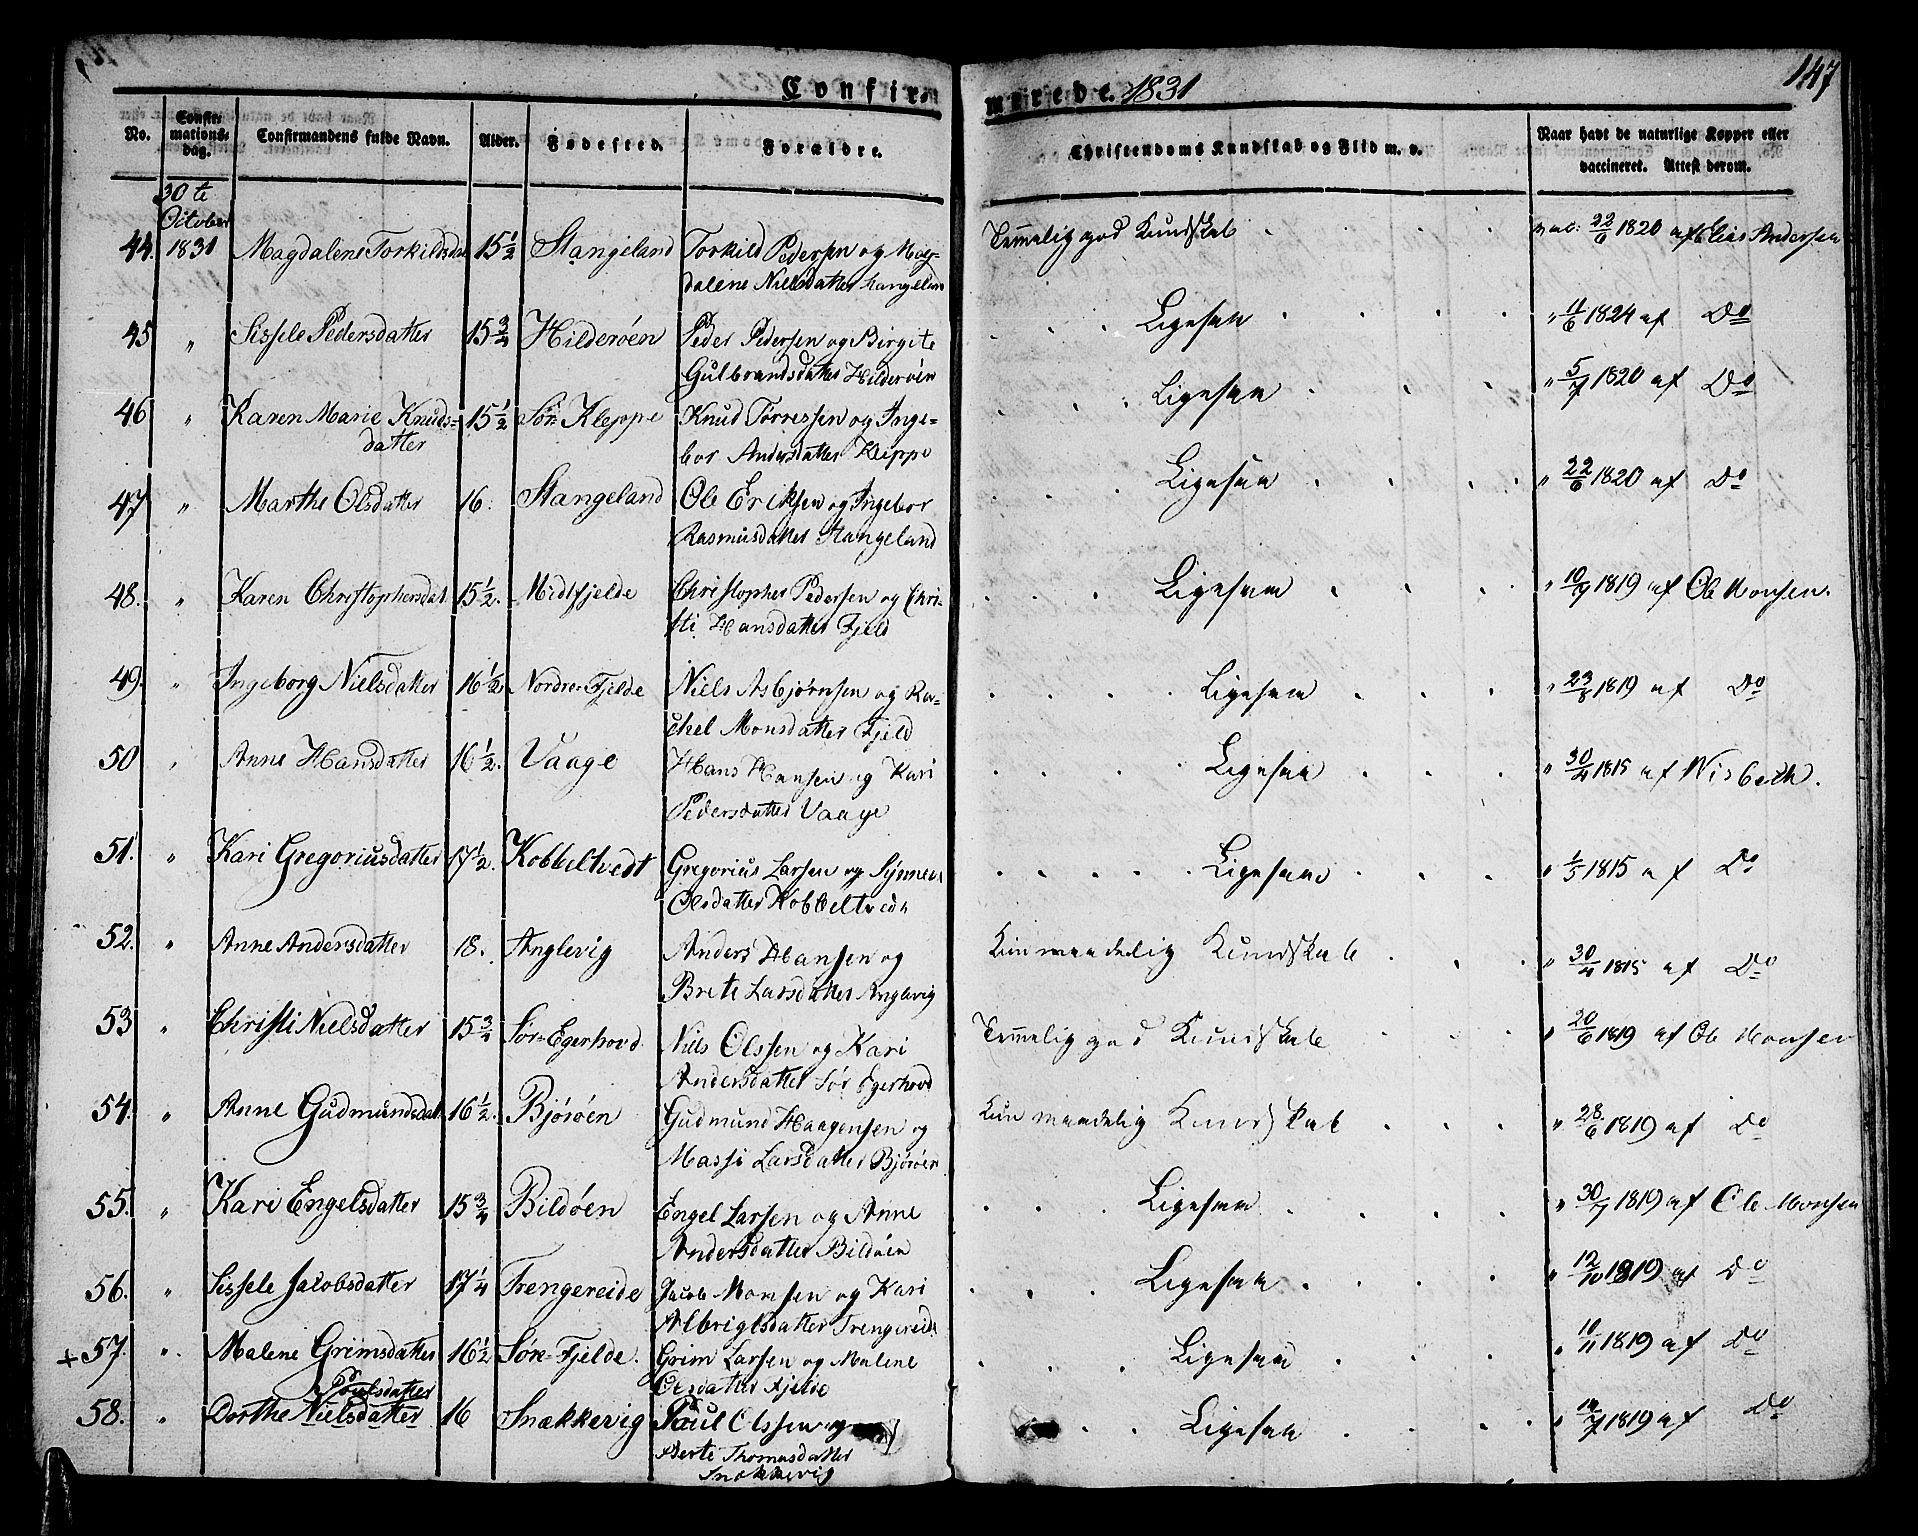 147
Confirmerede 1831
No. Confirmationsdag. Confirmandens fulde Navn. Alder. Fødested. Forældre. Christendoms Kundskab og Flid m. v. Naar havt de naturlige Kopper eller vaccineret. Attest derom.
30te
October
44. 1831 Magdalene Torkildsdat 15 1/2 Stangeland Torkild Pedersen og Mag- Temmelig god Kundskab vac: 22/6 1820 af Elias Andersen
dalene Nielsdatter Stangeland
45 " Sissele Pedersdatter 15 3/4 Hilderöen Peder Pedersen og Birgite Ligesaa " 11/6 1824 af Do
Gulbrandsdatter Hilderöen
46 " Karen Marie Knuds= 15 1/2 Sör=Kleppe Knud Torressen og Inge= Ligesaa " 5/7 1820 af Do
datter bor Andersdatter Kleppe
47 " Marthe Olsdatter 16. Stangeland Ole Eriksen og Ingebor Ligesaa " 22/6 1820 af Do
Rasmusdatter Stangeland
48. " Karen Christophersdat. 15 1/2. Midtfjelde Christopher Pedersen og Chri- Ligesaa " 10/7 1819 af Ole Monsen.
sti Hansdatter Fjeld
49. " Ingeborg Nielsdatter 16 1/2. Nordre-Fjelde Niels Asbjørnsen og Ra- Ligesaa " 23/8 1819 af Do
chel Monsdatter Fjeld
50 " Anne Hansdatter 16 1/2. Vaage Hans Hansen og Kari Ligesaa " 30/4 1815 af Nisbeth.
Pedersdatter Vaage
51. " Kari Gregoriusdatter 17 1/2. Kobbeltvedt Gregorius Larsen og Synneva Ligesaa " 1/5 1815 af Do
Olsdatter Kobbeltvedt
52. " Anne Andersdatter 18. Anglevig Anders Hansen og Kun maadelig Kundskab " 30/4 1815 af Do
Brete Larsdatter Anglevig
53 " Christi Nielsdatter 15 3/4 Sör-Egerhovd Niels Olssen og Kari Temmelig god Kundskab " 20/6 1819 af Ole Monsen
Andersdatter Sör Egerhovd
54. " Anne Gudmundsdat. 16 1/2. Björöen Gudmund Haagensen og Kun maadelig Kundskab " 28/6 1819 af Do
Massi Larsdatter Björöen
55. " Kari Engelsdatter 15 3/4 Bildöen Engel Larsen og Anne Ligesaa " 30/7 1819 af Ole Monsen
Andersdatter Bildöen
56. " Sissele Jacobsdatter 17 1/4 Trengereide Jacob Monsen og Kari Ligesaa " 12/10 1819 af Do
Albrigtsdatter Trengereide
+57. " Malene Grimsdatter 16 1/2 Söre-Fjelde. Grim Larsen og Malene Ligesaa " 10/11 1819 af Do
Poulsdatter Olsdatter Fjelde
58. " Dorthe Nielsdatter 16 Snækkevig Poul Olssen og Ligesaa " 14/7 1819 af Do
Berte Thomasdatter
Snækkevig